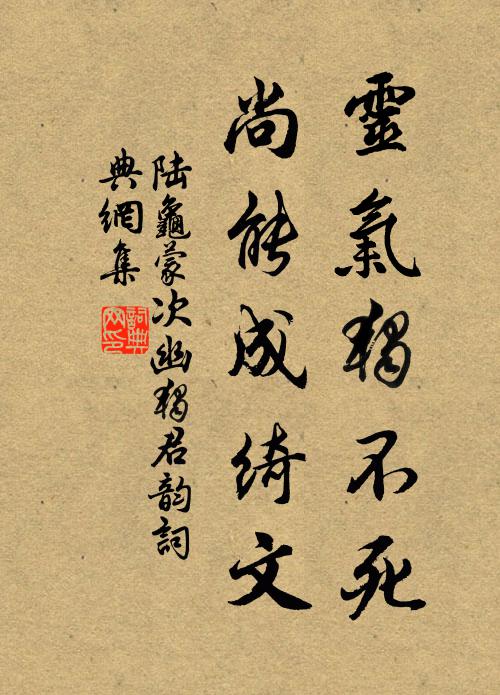 靈氣獨不死
尚能成綺文
陸龜蒙次幽獨君韵詞
典網集
詞典
网印